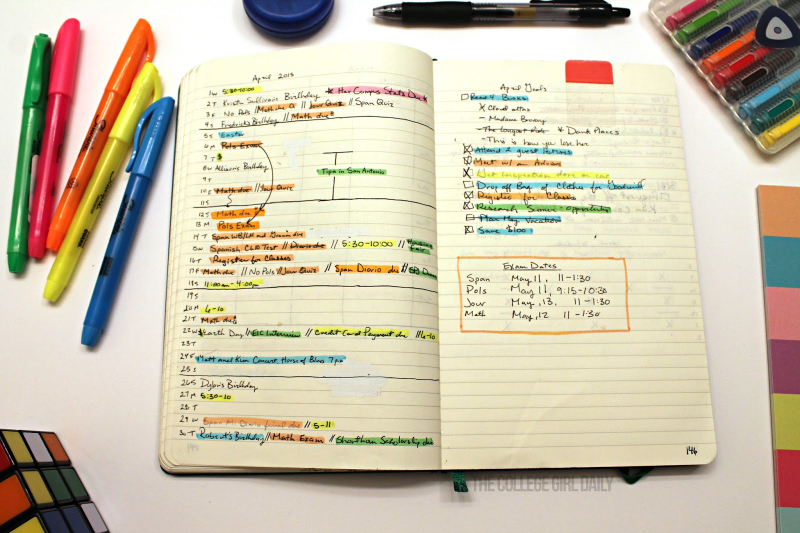 April 2013
1 M 5:30-10:00
2 T Kristin Sullivan's Birthday * Her Campus Stats Due *
3 W No Pols // Math due // Jour Quiz // Span Quiz
4 T Fredrick's Birthday // Math due
5 F Easter
6 S Pols Exam
7 S $
8 M Allison's Birthday
9 T
Tepa in San Antonio
10 W Math due // Jour Quiz
11 T
12 F Math due
13 S Pols Exam
14 T Span due
15 Spanish CLO Test // Diario due // 5:30-10:00 //
16 T Register for Classes
17 Math due // No Pols // Jour Quiz // Span Diario due //
18 11:00am - 4:00pm
19 S
20 M 6-10
21 T Math due
22 W $ Earth Day // EIC Interview // Credit Card Payment due // 6-10
23 T
24 F Matt and Kim Concert House of Blues 7pm
25 S
26 S Dylan's Birthday
27 M 5:30-10
28 T
29 W Span due // 5-11
30 T Robert's Birthday // Math Exam // Scholarship due
April Goals
Read 4 Books
X Cloud atlas
- Madame Bovary
- The Longest Ride * Dark Places
- This is how you lose her
Attend 2 guest lectures
Meet w/ an Advisor
Get inspection done on car
Drop off Bag of Clothes for Goodwill
Register for Classes
Research Summer opportunities
Plan May Vacation
Save $100
Exam Dates
Span May 11, 11-1:30
Pols May 11, 9:15-10:30
Jour May 13, 11-1:30
Math May 12 11-1:30
146
THE COLLEGE GIRL DAILY